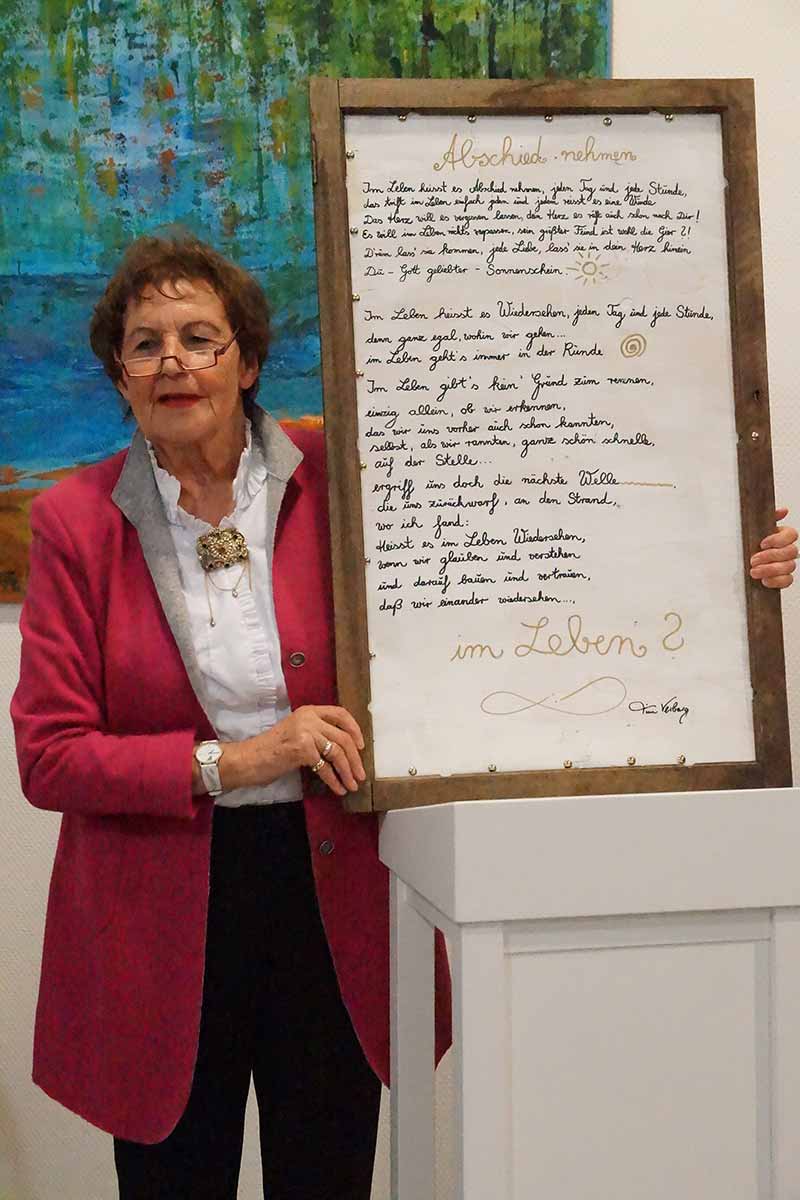 Abschied nehmen
Im Leben heisst es Abschied nehmen, jeden Tag und jede Stunde,
das trifft im Leben einfach jeden und jedem reisst es eine Wunde
Das Herz will es vergessen lassen, dein Herz es ruft auch schon nach Dir!
Es will im Leben nichts verpassen, sein größter Feind ist wohl die Gier?!
D'rum lass' sie kommen, jede Liebe, lass' sie in dein Herz hinein
Du - Gott geliebter - Sonnenschein.
Im Leben heisst es Wiedersehen, jeden Tag und jede Stunde,
denn ganz egal, wohin wir gehen...
im Leben geht's immer in der Runde
Im Leben gibt's kein' Grund zum rennen,
einzig allein, ob wir erkennen,
das wir uns vorher auch schon kannten,
selbst, als wir rannten, ganz schön schnelle,
auf der Stelle...
ergriff uns doch die nächste Welle
die uns zurückwarf, an den Strand,
wo ich fand:
Heisst es im Leben Wiedersehen,
wenn wir glauben und verstehen
und darauf bauen und vertrauen,
daß wir einander wiedersehen...,
im Leben?